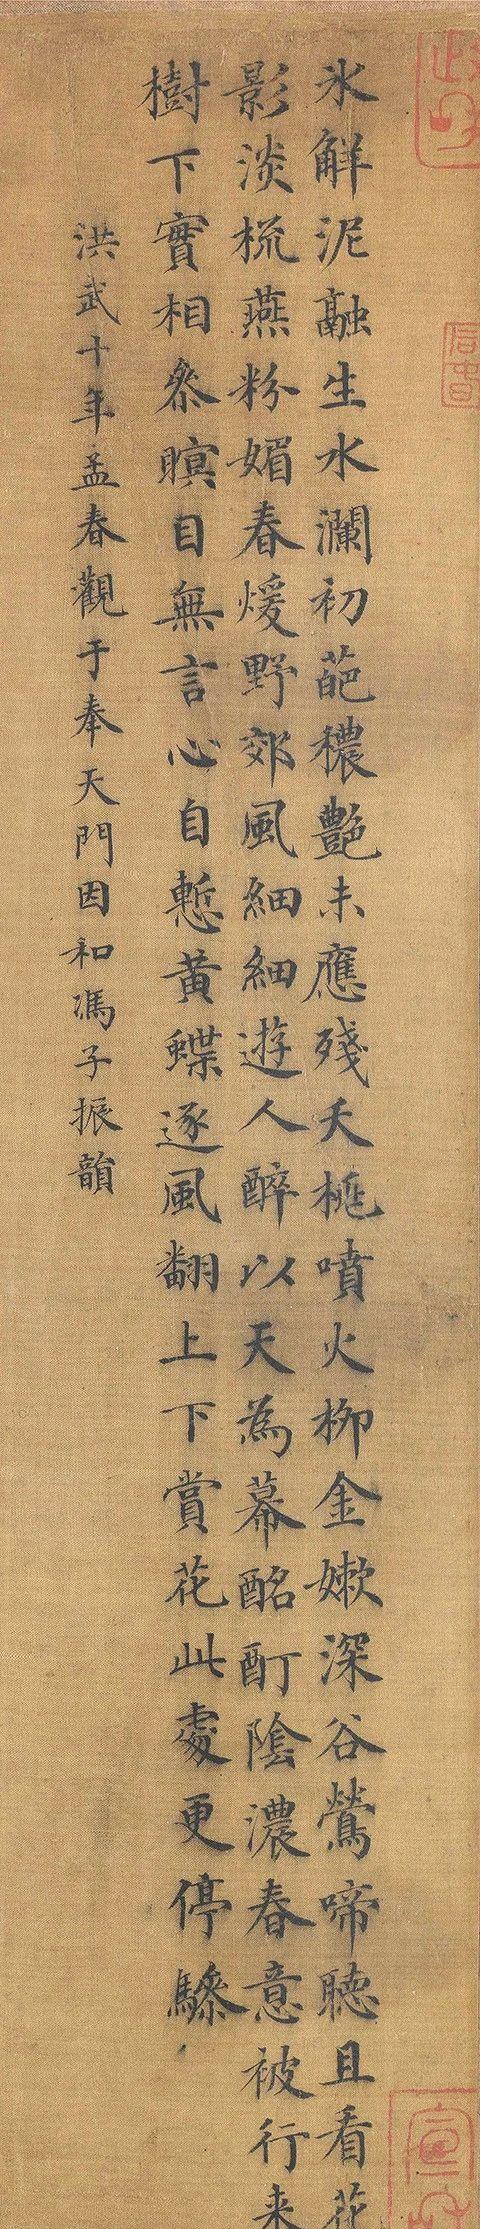 氷解泥融生水瀾初葩穠艷未應殘夭桃噴火柳金嫰深谷鶯啼聽且看花
影淡梳燕粉媚春煖野郊風細細遊人醉以天為幕酩酊陰濃春意被行来
樹下實相叅瞑目無言心自慙黄蝶逐風翻上下賞花此處更停驂
洪武十年孟春觀于奉天門因和馮子振韻